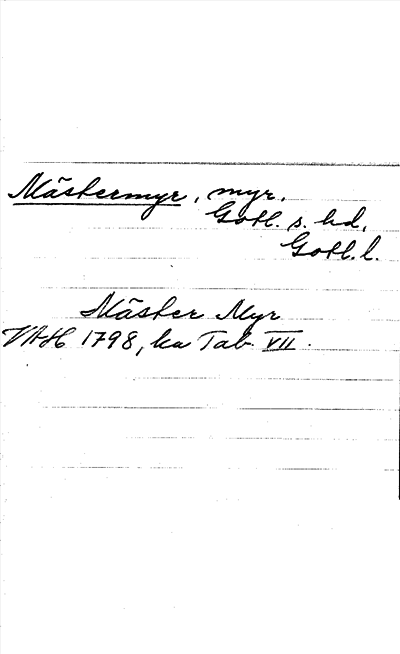 Mästermyr, myr.
Gotl. s. hd,
Gotl. l.
Mäster Myr
VAH 1798, ka Tab. VII.